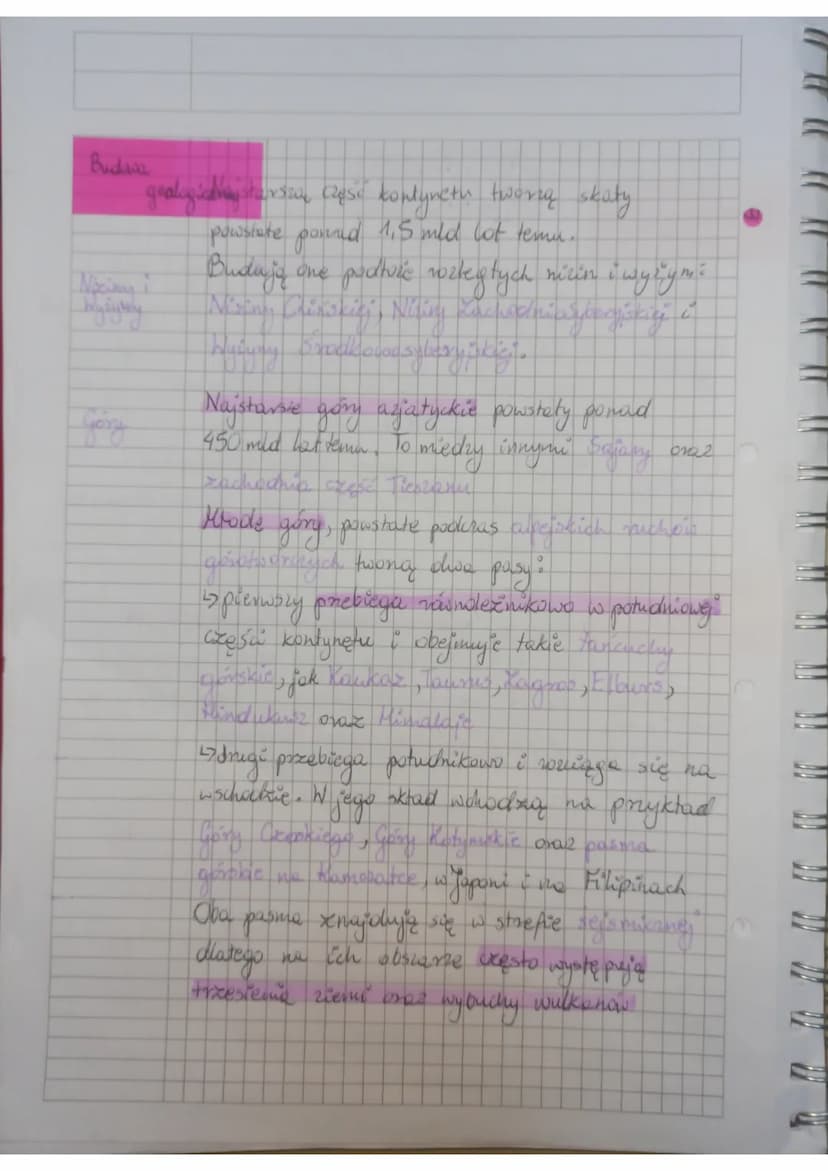 Budowa
geologiczna
Najstarszą część kontynetu tworzą skały
powstałe ponad 1,5 mld lat temu.
Budują one podłoże rozległych nizin i wyżyn:
Niziny i
Wyżyny
Niziny Chińskiej, Niziny Zachodniosyberyjskiej i
Wyżyny Środkowosyberyjskiej.
Góry
Najstarsze góry azjatyckie powstały ponad
450 mld lat temu. To między innymi Sajany oraz
zachodnia część Tienszanu
Młode góry, powstałe podczas alpejskich ruchów
górotwórczych tworzą dwa pasy:
↳pierwszy przebiega równoleżnikowo w południowej
części kontynetu i obejmuje takie łańcuchy
górskie, jak Kaukaz, Taurus, Zagros, Elburs,
Hindukusz oraz Himalaje
↳drugi przebiega południkowo i rozciąga się na
wschodzie. W jego skład wchodzą na przykład
Góry Czerskiego, Góry Kołymskie oraz pasma
górskie na Kamczatce, w Japoni i na Filipinach
Oba pasma znajdują się w strefie sejsmicznej
dlatego na ich obszarze często występują
trzęsienia ziemi oraz wybuchy wulkanów